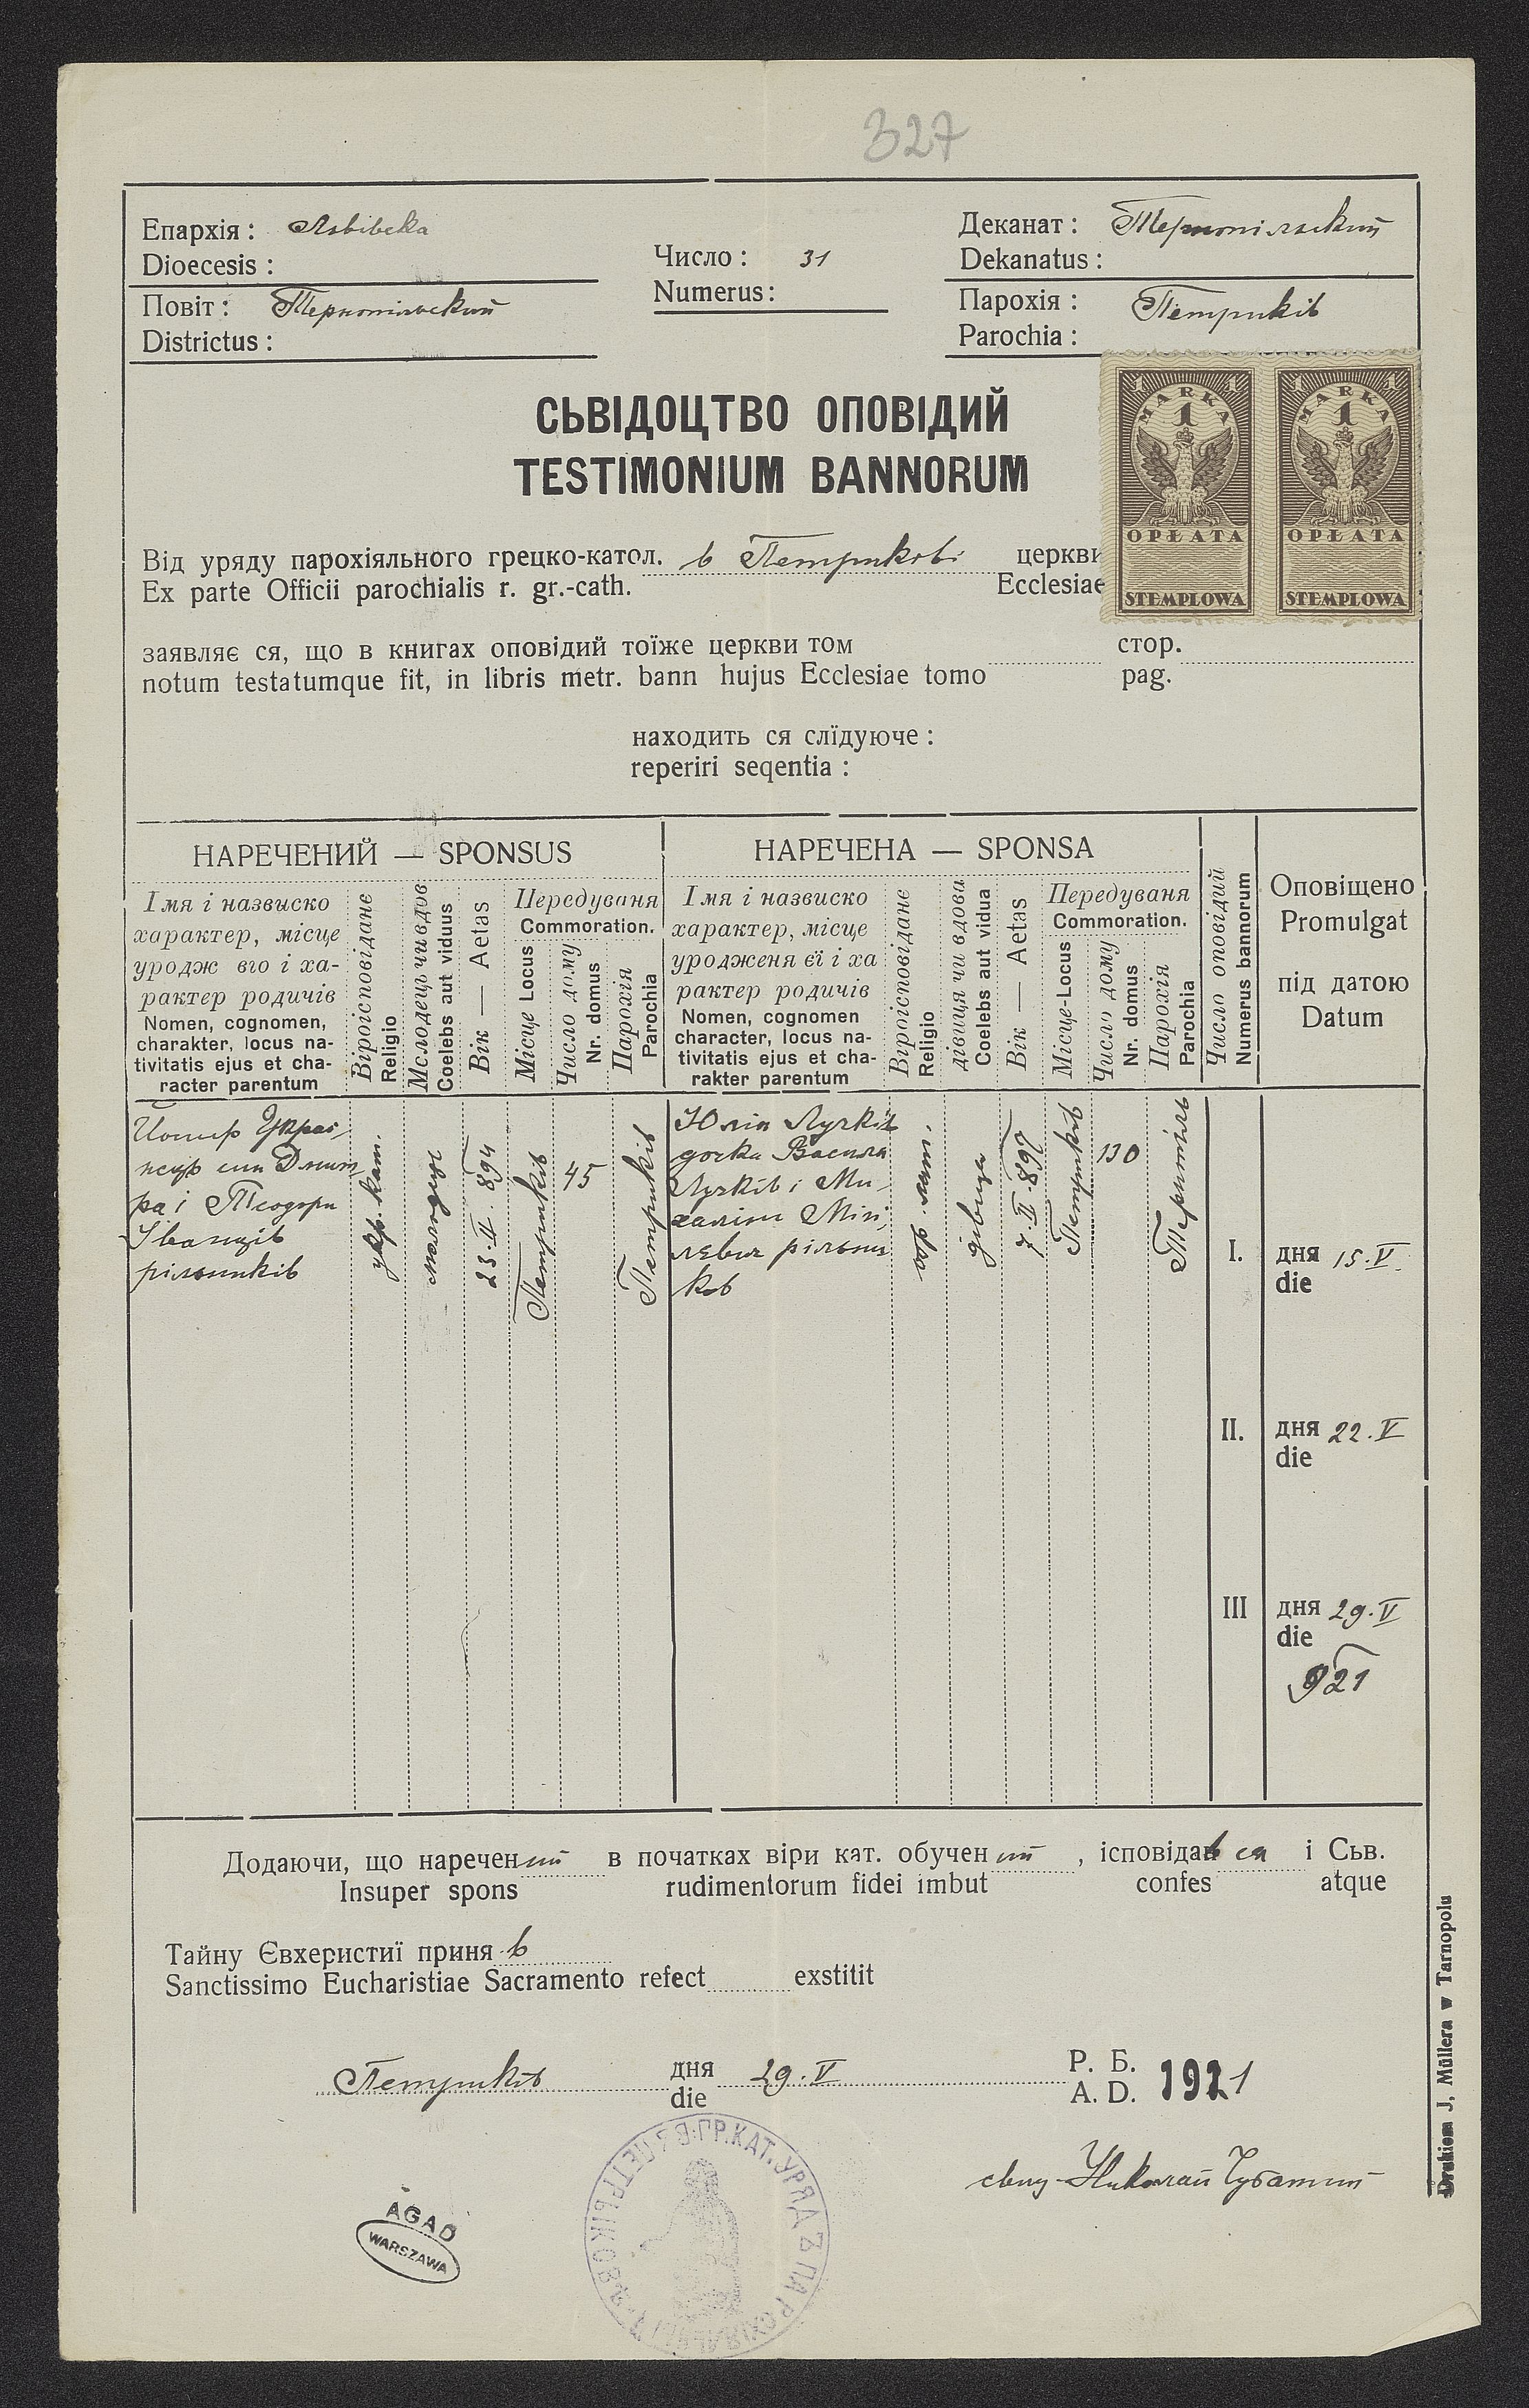 327
Епархія: Львівска
Dioecesis:
Повіт: Тернопільский
Districtus:
Число: 31
Numerus:
Деканат: Тернопільский
Dekanatus:
Парохія: Петриків
Parochia:
1 МARKA 1
1
OPŁATA
STEMPLOWA
1 MARKA 1
1
OPŁATA
STEMPLOWA
СЬВІДОЦТВО ОПОВІДИЙ
TESTIMONIUM BANNORUM
Від уряду парохіяльного грецко-катол. в Петрикові церкви
Ex parte Officii parochialis r. gr.-cath. Ecclesiae
заявляє ся, що в книгах оповідий тоїже церкви том стор.
notum testatumque fit, in libris metr. bann hujus Ecclesiae tomo pag.
находить ся слїдуюче:
reperiri seqentia:
НАРЕЧЕНИЙ — SPONSUS
Імя і назвиско
характер, місце
уродж вго і ха-
рактер родичів
Nomen, cognomen,
charakter, locus na-
tivitatis ejus et cha-
racter parentum
Віроісповіданє
Religio
Мслодець чи вдов
Coelebs aut vidus
Вік — Aetas
Передуваня
Commoration.
Місце Locus
Число дому
Nr. domus
Парохія
Parochia
НАРЕЧЕНА — SPONSA
Імя і назвиско
характер, місце
уродженя єї і ха
рактер родичів
Nomen, cognomen
character, locus na-
tivitatis ejus et cha-
rakter parentum
Віроісповіданє
Religio
дівиця чи вдова
Coelebs aut vidua
Вік — Aetas
Передуваня
Commoration.
Місце-Locus
Число дому
Nr. domus
Парохія
Parochia
Число оповідий
Numerus bannorum
Оповіщено
Promulgat
під датою
Datum
син Дмит
ра і Теодори
Іванців
рільників
молодець
23.II.894
Петриків
45
Петриків
Юлія Лучків
дочка Василя
Лучків і Ми-
рільни
ків
дівиця
7.II.897
Петриків
130
I. дня 15.V.
die
II. дня 22.V
die
III дня 29.V
die
921
Додаючи, що наречений в початках віри кат. обучений, ісповідав ся і Сьв.
Insuper spons rudimentorum fidei imbut confes atque
Тайну Євхеристиї приняв
Sanctissimo Eucharistiae Sacramento refect exstitit
Петриків дня 29.V Р. Б. 1921
die A. D.
свящ. Николай Чубатий
AGAD
WARSZAWA
ГР.КАТ.УРЯДЪ ПАРОХІЯЛЬНЫЙ
Drukiem J. Müllera w Tarnopolu